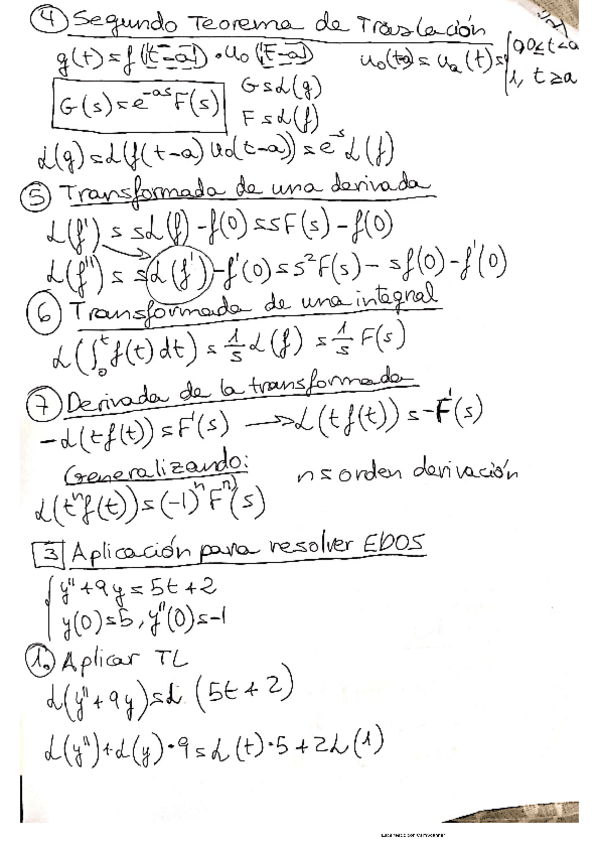 ④ Segundo Teorema de Traslación
g(t) = f(t-a) · u₀(t-a)    u₀(t-a) = uₐ(t) = { 0, 0≤t<a
1, t≥a
G(s) = e^{-as} F(s)    G = L(g)
F = L(f)
L(g) = L(f(t-a) u₀(t-a)) = e^{-s} L(f)
⑤ Transformada de una derivada
L(f') = sL(f) - f(0) = sF(s) - f(0)
L(f'') = sL(f') - f'(0) = s²F(s) - sf(0) - f'(0)
⑥ Transformada de una integral
L(∫₀ᵗ f(t) dt) = 1/s L(f) = 1/s F(s)
⑦ Derivada de la transformada
-L(tf(t)) = F'(s) → L(tf(t)) = -F'(s)
Generalizando:    n = orden derivación
L(tⁿf(t)) = (-1)ⁿ Fⁿ⁾(s)
3 Aplicación para resolver EDOS
{ y'' + 9y = 5t + 2
y(0) = 5, y''(0) = -1
① Aplicar TL
L(y'' + 9y) = L (5t + 2)
L(y'') + L(y) · 9 = L(t) · 5 + 2L(1)